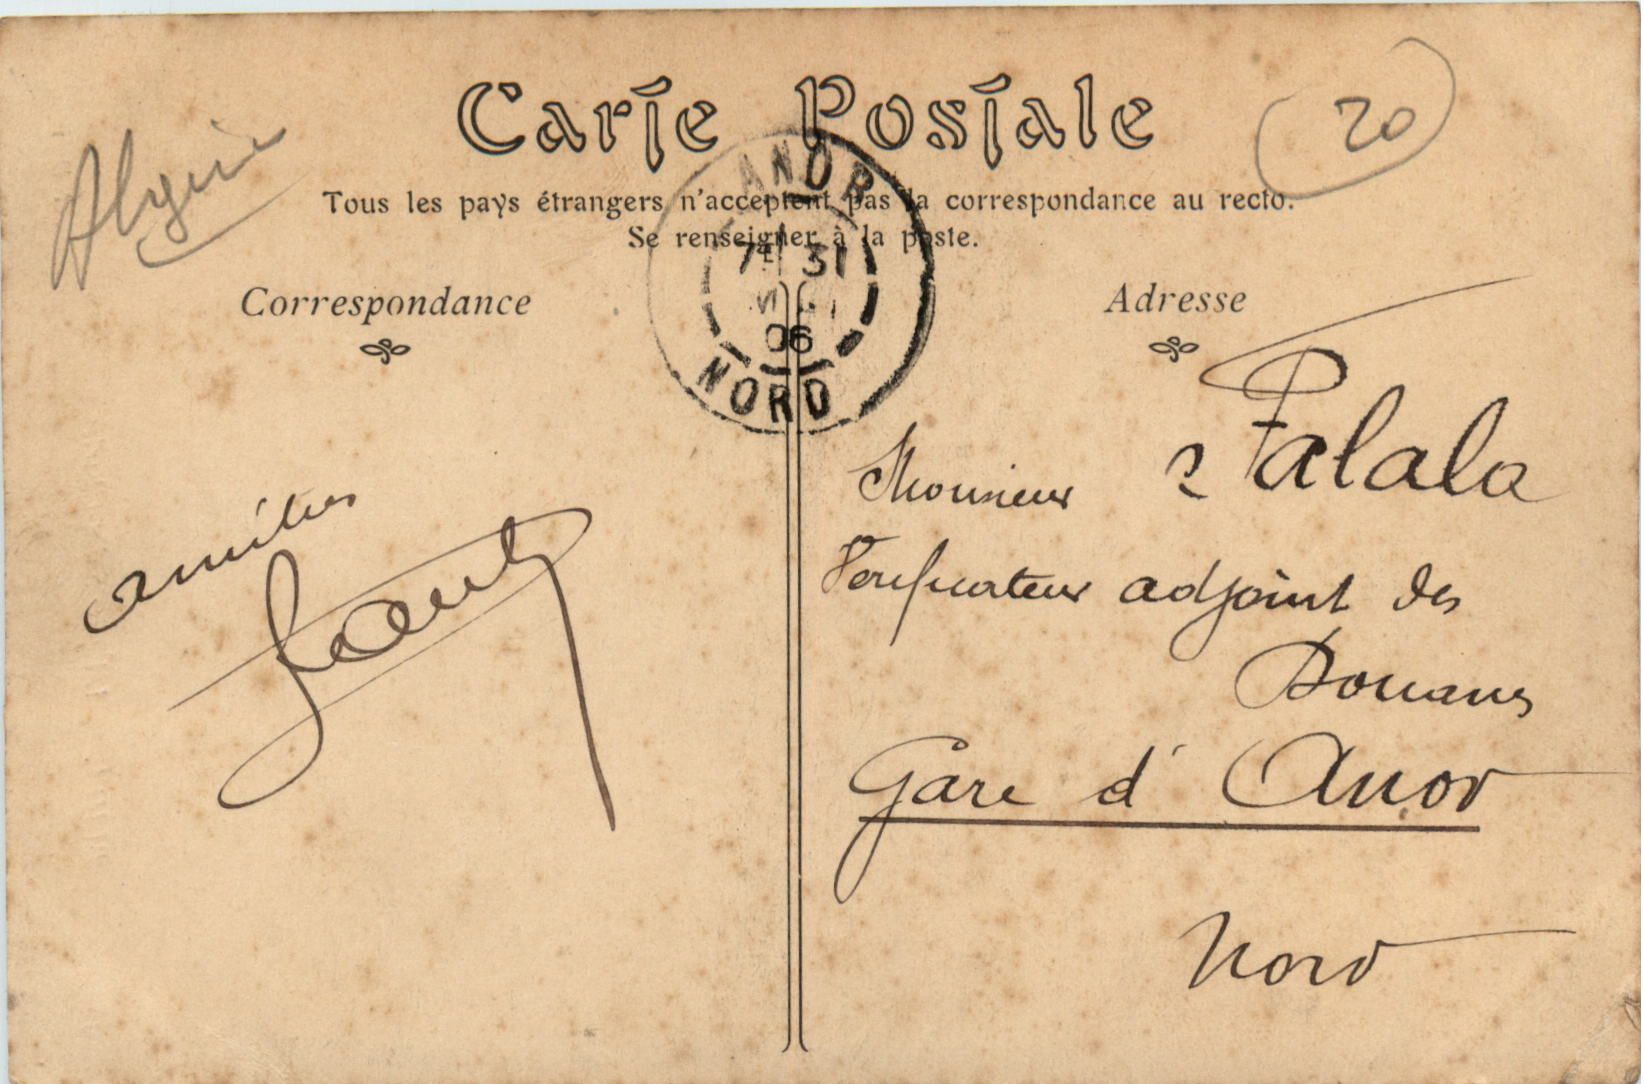 Carte Postale
20
Algérie
Tous les pays étrangers n'acceptent pas la correspondance au recto.
Se renseigner à la poste.
ANOR
7E 31
06
NORD
Correspondance
Adresse
Monsieur Falala
Vérificateur adjoint des
Douanes
Gare d'Anor
Nord
amitiés